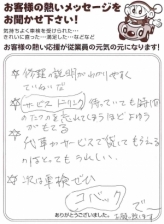 お客様の熱いメッセージを
お聞かせ下さい!
気持ちよく車検を受けられた…
きれいに直った…満足した…などなど
お客様の熱い応援が従業員の元気の元になります!
☆修理の説明がわかりやすく
ていねいな
☆サービスドリンク 待っていても時間
のたつのを忘れてしまうほど
☆代車のサービスで貸してもらえる
のはとてもうれしい。
☆次は車検ぜひ
コバックで
お願いします
ありがとうございました。